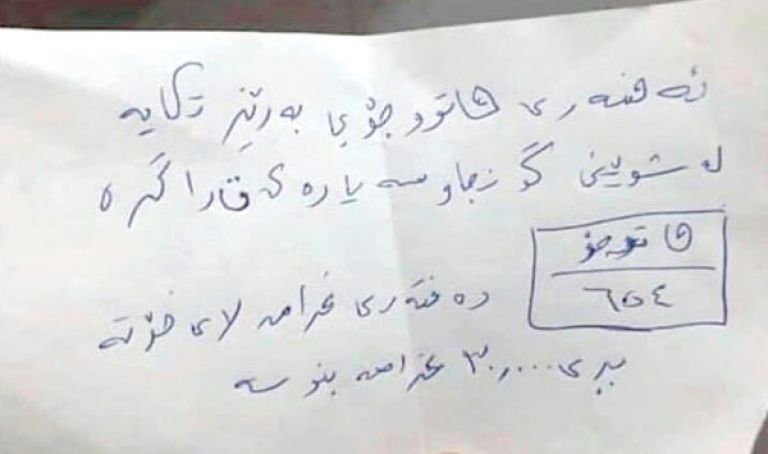 ئەفسەری هاتووچۆی بەڕێز تکایە
لە شوینی گونجاو سەیارەکە ڕاگرە
هاتوچۆ
٦٥٤
دەفتەری غرامە لای خۆتە
بڕی ٣٠,٠٠٠ غرامە بنوسە